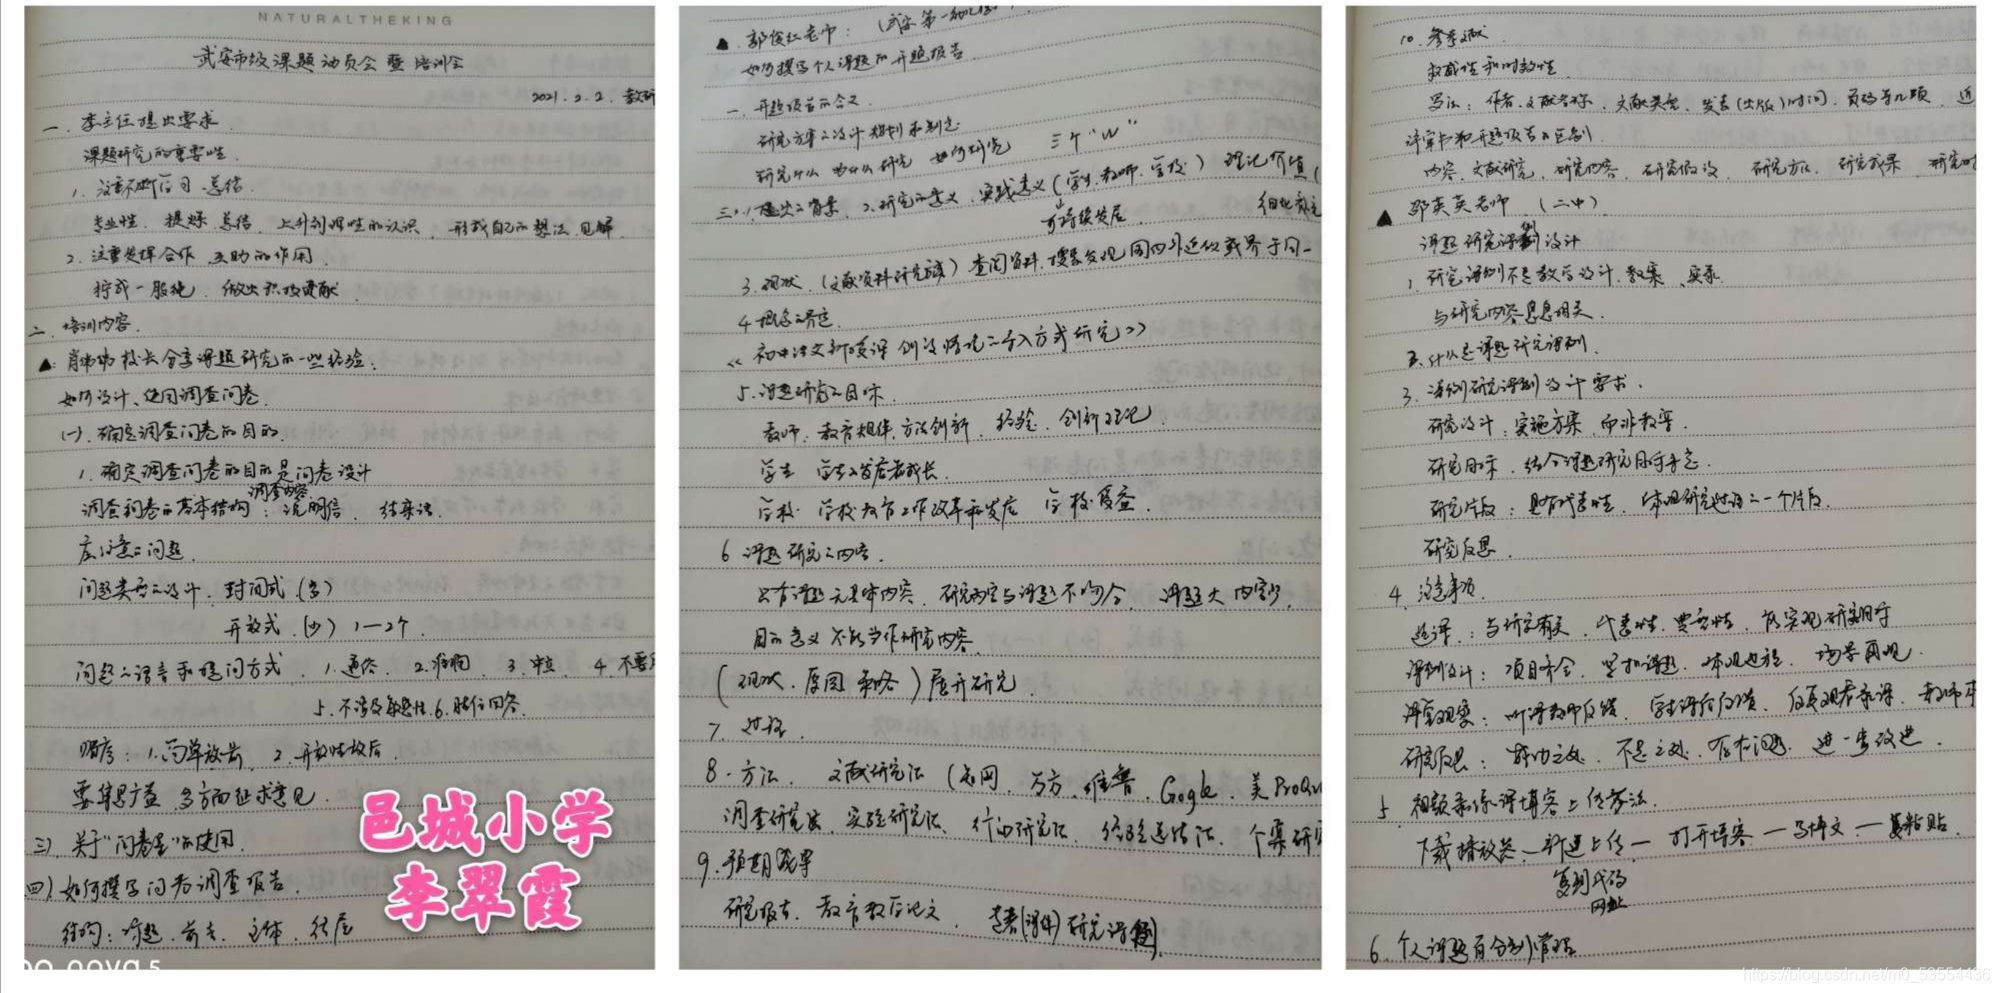 NATURALTHEKING
武安市级课题动员会暨培训会
2021.2.2. 教研
一、李主任提出要求
课题研究的重要性.
1. 注重不断学习、总结.
专业性、提炼、总结、上升到理性的认识、形成自己的想法、见解.
2. 注重发挥合作、互助的作用.
拧成一股绳、做出积极贡献.
二、培训内容.
▲ 校长分享课题研究的一些经验.
如何设计、使用调查问卷.
(一). 确定调查问卷的目的.
1. 确定调查问卷的目的是问卷设计
调查内容
调查问卷的基本结构: 说明信、 结束语.
应注意的问题.
问题类型之设计. 封闭式.(多)
开放式.(少) 1—2个.
问题之语言和提问方式. 1. 通俗 2. 准确 3. 中立 4. 不要
5. 不涉及敏感性 6.
顺序: 1. 简单放前 2. 开放性放后.
要集思广益 多方面征求意见.
三). 关于"问卷星"的使用.
四). 如何撰写问卷调查报告.
结构: 标题、前言、主体、结尾
邑城小学
李翠霞
nova 5
▲. 郭俊红老师: (武安第一幼儿园)
如何撰写个人课题的开题报告
一、开题报告的含义.
研究方案之设计 规划和制定
研究什么 为什么研究 如何研究 三个"W"
1. 提出之背景. 2. 研究之意义、实践意义(学生、教师、学校) 理论价值(
可持续发展
3. 现状. (文献资料研究综述) 查阅资料、搜集发现国内外近似或界于同一
4. 概念之界定
《初中语文新授课创设情境之导入方式研究》
5. 课题研究之目标.
教师. 教育规律、方法创新、经验、创新理论
学生 学生之发展和成长.
学校. 学校教育工作改革和发展 学校
6. 课题研究之内容.
只有课题无具体内容. 研究内容与课题不吻合. 课题大内容少.
目的意义不能当作研究内容.
(现状、原因、策略) 展开研究.
7. 过程.
8. 方法. 文献研究法 (知网、万方、维普、Gogle、美ProQu
调查研究法、实验研究法、行动研究法、经验总结法、个案研究
9. 预期成果
研究报告、教育教学论文、 (课件) 研究课例.
10. 参考文献.
权威性和时效性.
写法: 作者、文献名称、文献类型、发表(出版)时间、页码等几项, 近
评审书和开题报告之区别.
内容、文献研究、研究内容、研究假设、研究方法、研究成果、研究
▲ 邵英英老师 (二中).
课题研究课例设计
1. 研究课例不是教学设计、教案、实录.
与研究内容息息相关.
2. 什么是课题研究课例.
3. 课例研究课例设计要求.
研究设计: 实施方案、而非教案.
研究目标: 结合课题研究目标来定.
研究片段: 具有代表性、体现研究过程之一个片段.
研究反思.
4. 注意事项
选课: 与研究有关、代表性、典型性、能实现研究目标
课例设计: 项目齐全、紧扣课题、体现过程、场景再现.
课堂观察: 听课教师反馈、学生课后反馈、反复观看录课、教师本
研究反思: 成功之处、不足之处、存在问题、进一步改进.
5. 视频录像课博客上传方法.
下载播放器—新建上传—打开博客—写博文—复粘贴.
复制代码
网址
6. 个人课题百分制管理
https://blog.csdn.net/m0_53554436